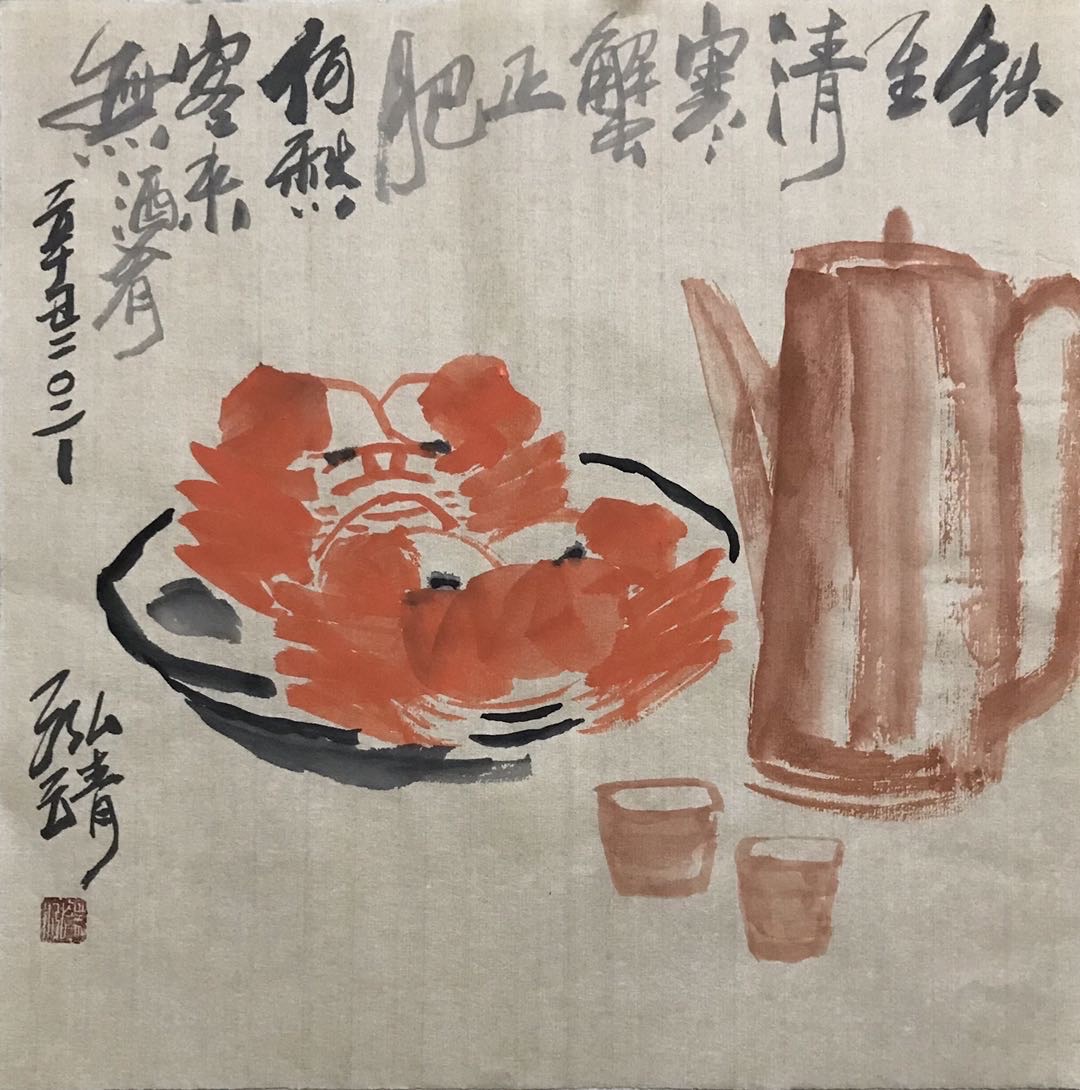 秋至清寒蟹正肥
何愁
客来
無酒肴
辛丑二〇二一
靖